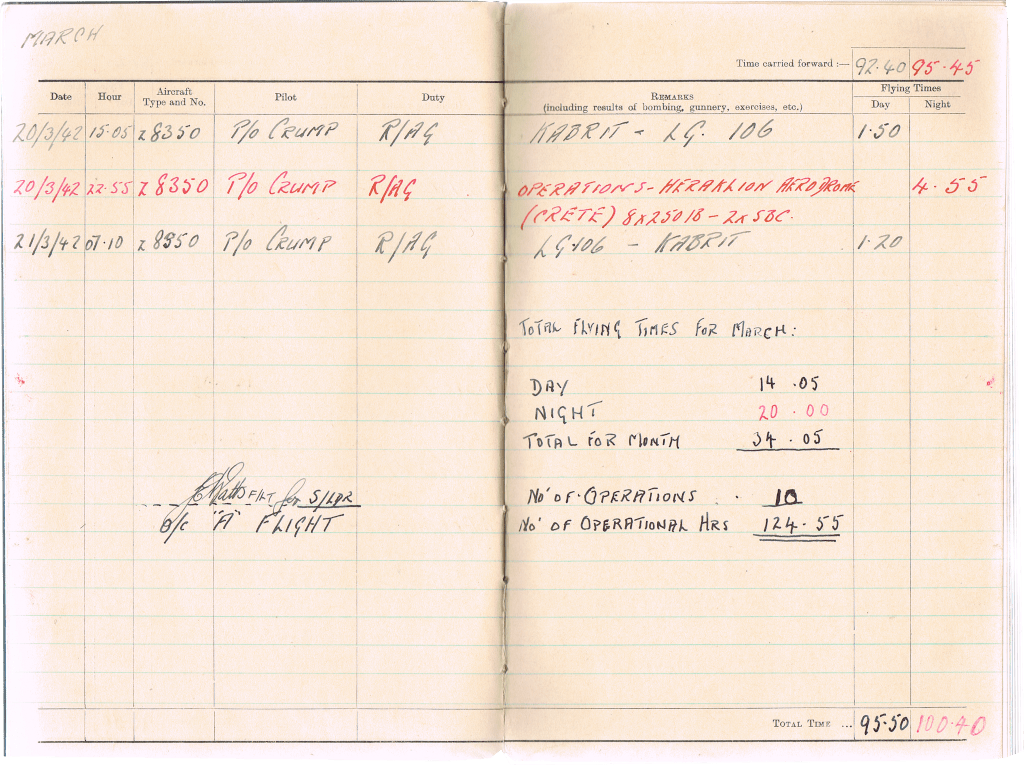 MARCH
Time carried forward :— 92·40 95·45
Date Hour Aircraft Type and No. Pilot Duty REMARKS (including results of bombing, gunnery, exercises, etc.) Flying Times Day Night
20/3/42 15·05 Z 8350 P/O CRUMP R/AG KABRIT - LG. 106 1·50
20/3/42 22·55 Z 8350 P/O CRUMP R/AG OPERATIONS - HERAKLION AERODROME 4·55
(CRETE) 8x250lB - 2xSBC.
21/3/42 07·10 Z 8350 P/O CRUMP R/AG LG·106 - KABRIT 1·20
TOTAL FLYING TIMES FOR MARCH:
DAY 14·05
NIGHT 20·00
TOTAL FOR MONTH 34·05
F/LT for S/LDR
O/C "A" FLIGHT
No' OF OPERATIONS · 10
No' OF OPERATIONAL HRS 124·55
TOTAL TIME ... 95·50 100·40